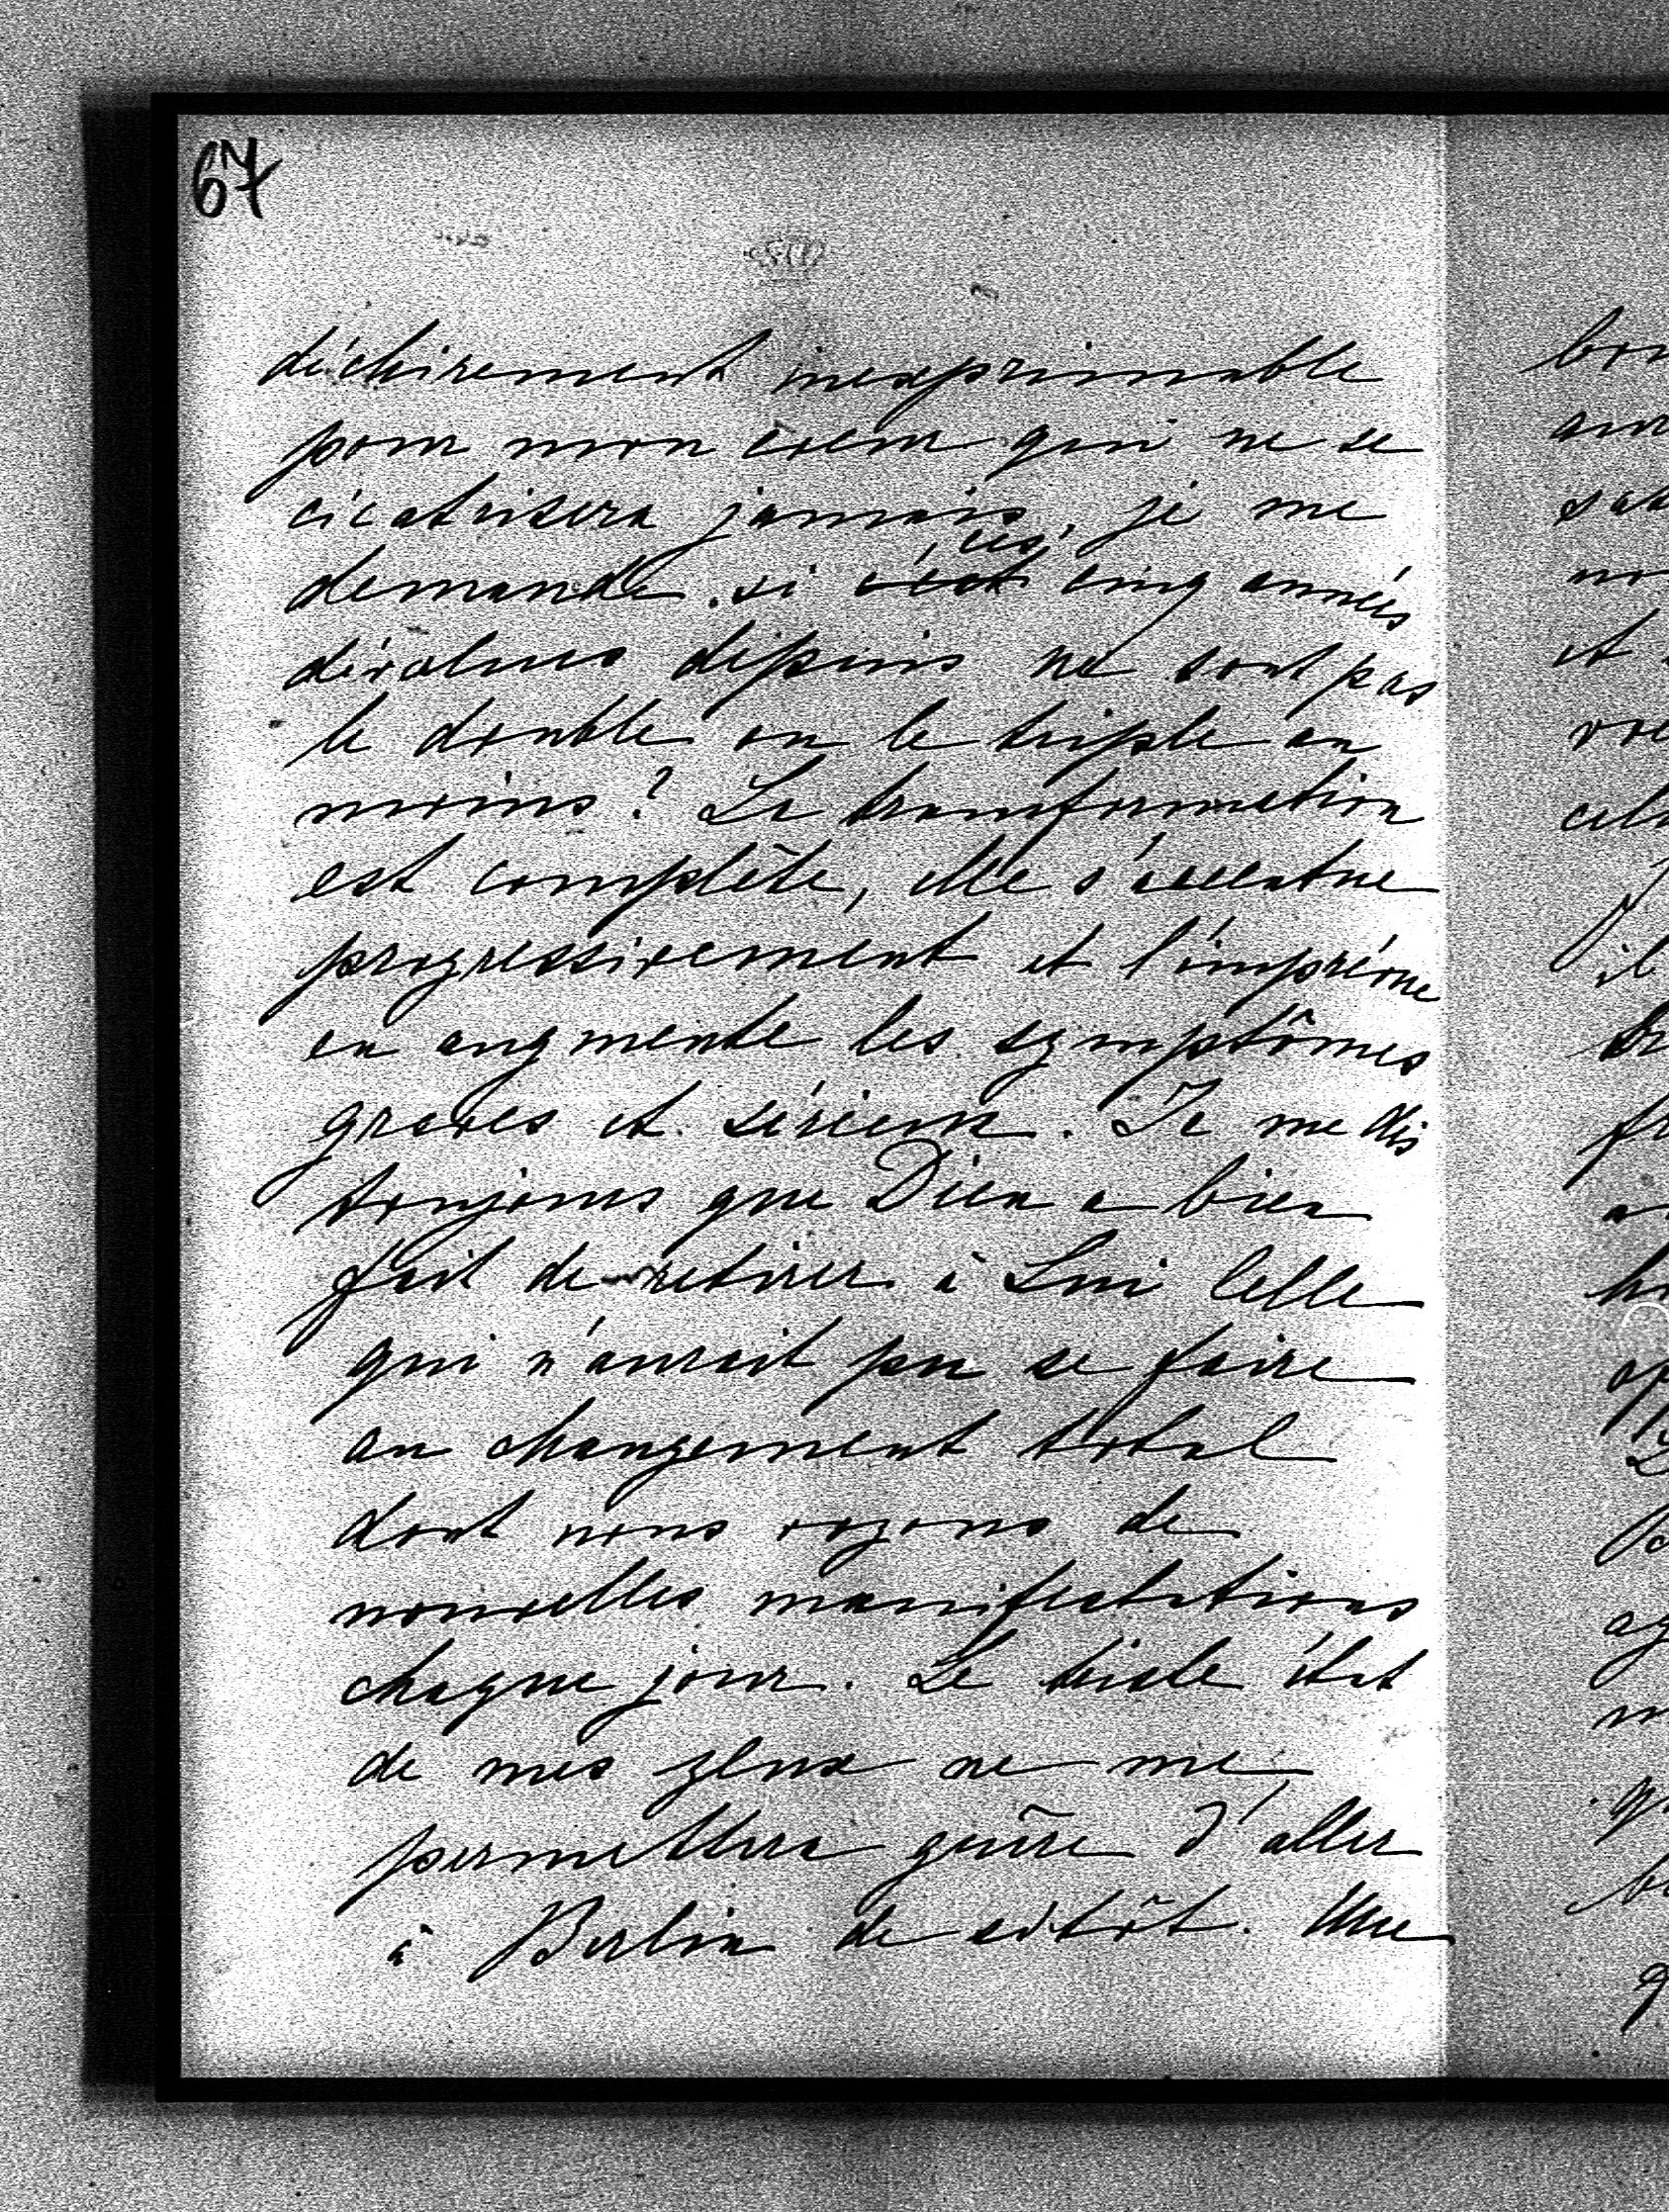 67
déchirement inexprimable
pour mon coeur qui ne se
cicatrisera jamais, je me
demande si ces cinq années
dévolues depuis ne sont pas
le double ou le triple au
moins? La transformation
est complète, elle s'accentue
progressivement et l'imprévue
en augmente les symptômes
graves et sérieux. Je me dis
toujours que Dieu a bien
fait de retirer à Lui Celle
qui n'aurait pu se faire
au changement total
dont nous voyons de
nouvelles manifestations
chaque jour. Le triste état
de mes yeux ne me
permettra guère d'aller
à Berlin de sitôt. Une